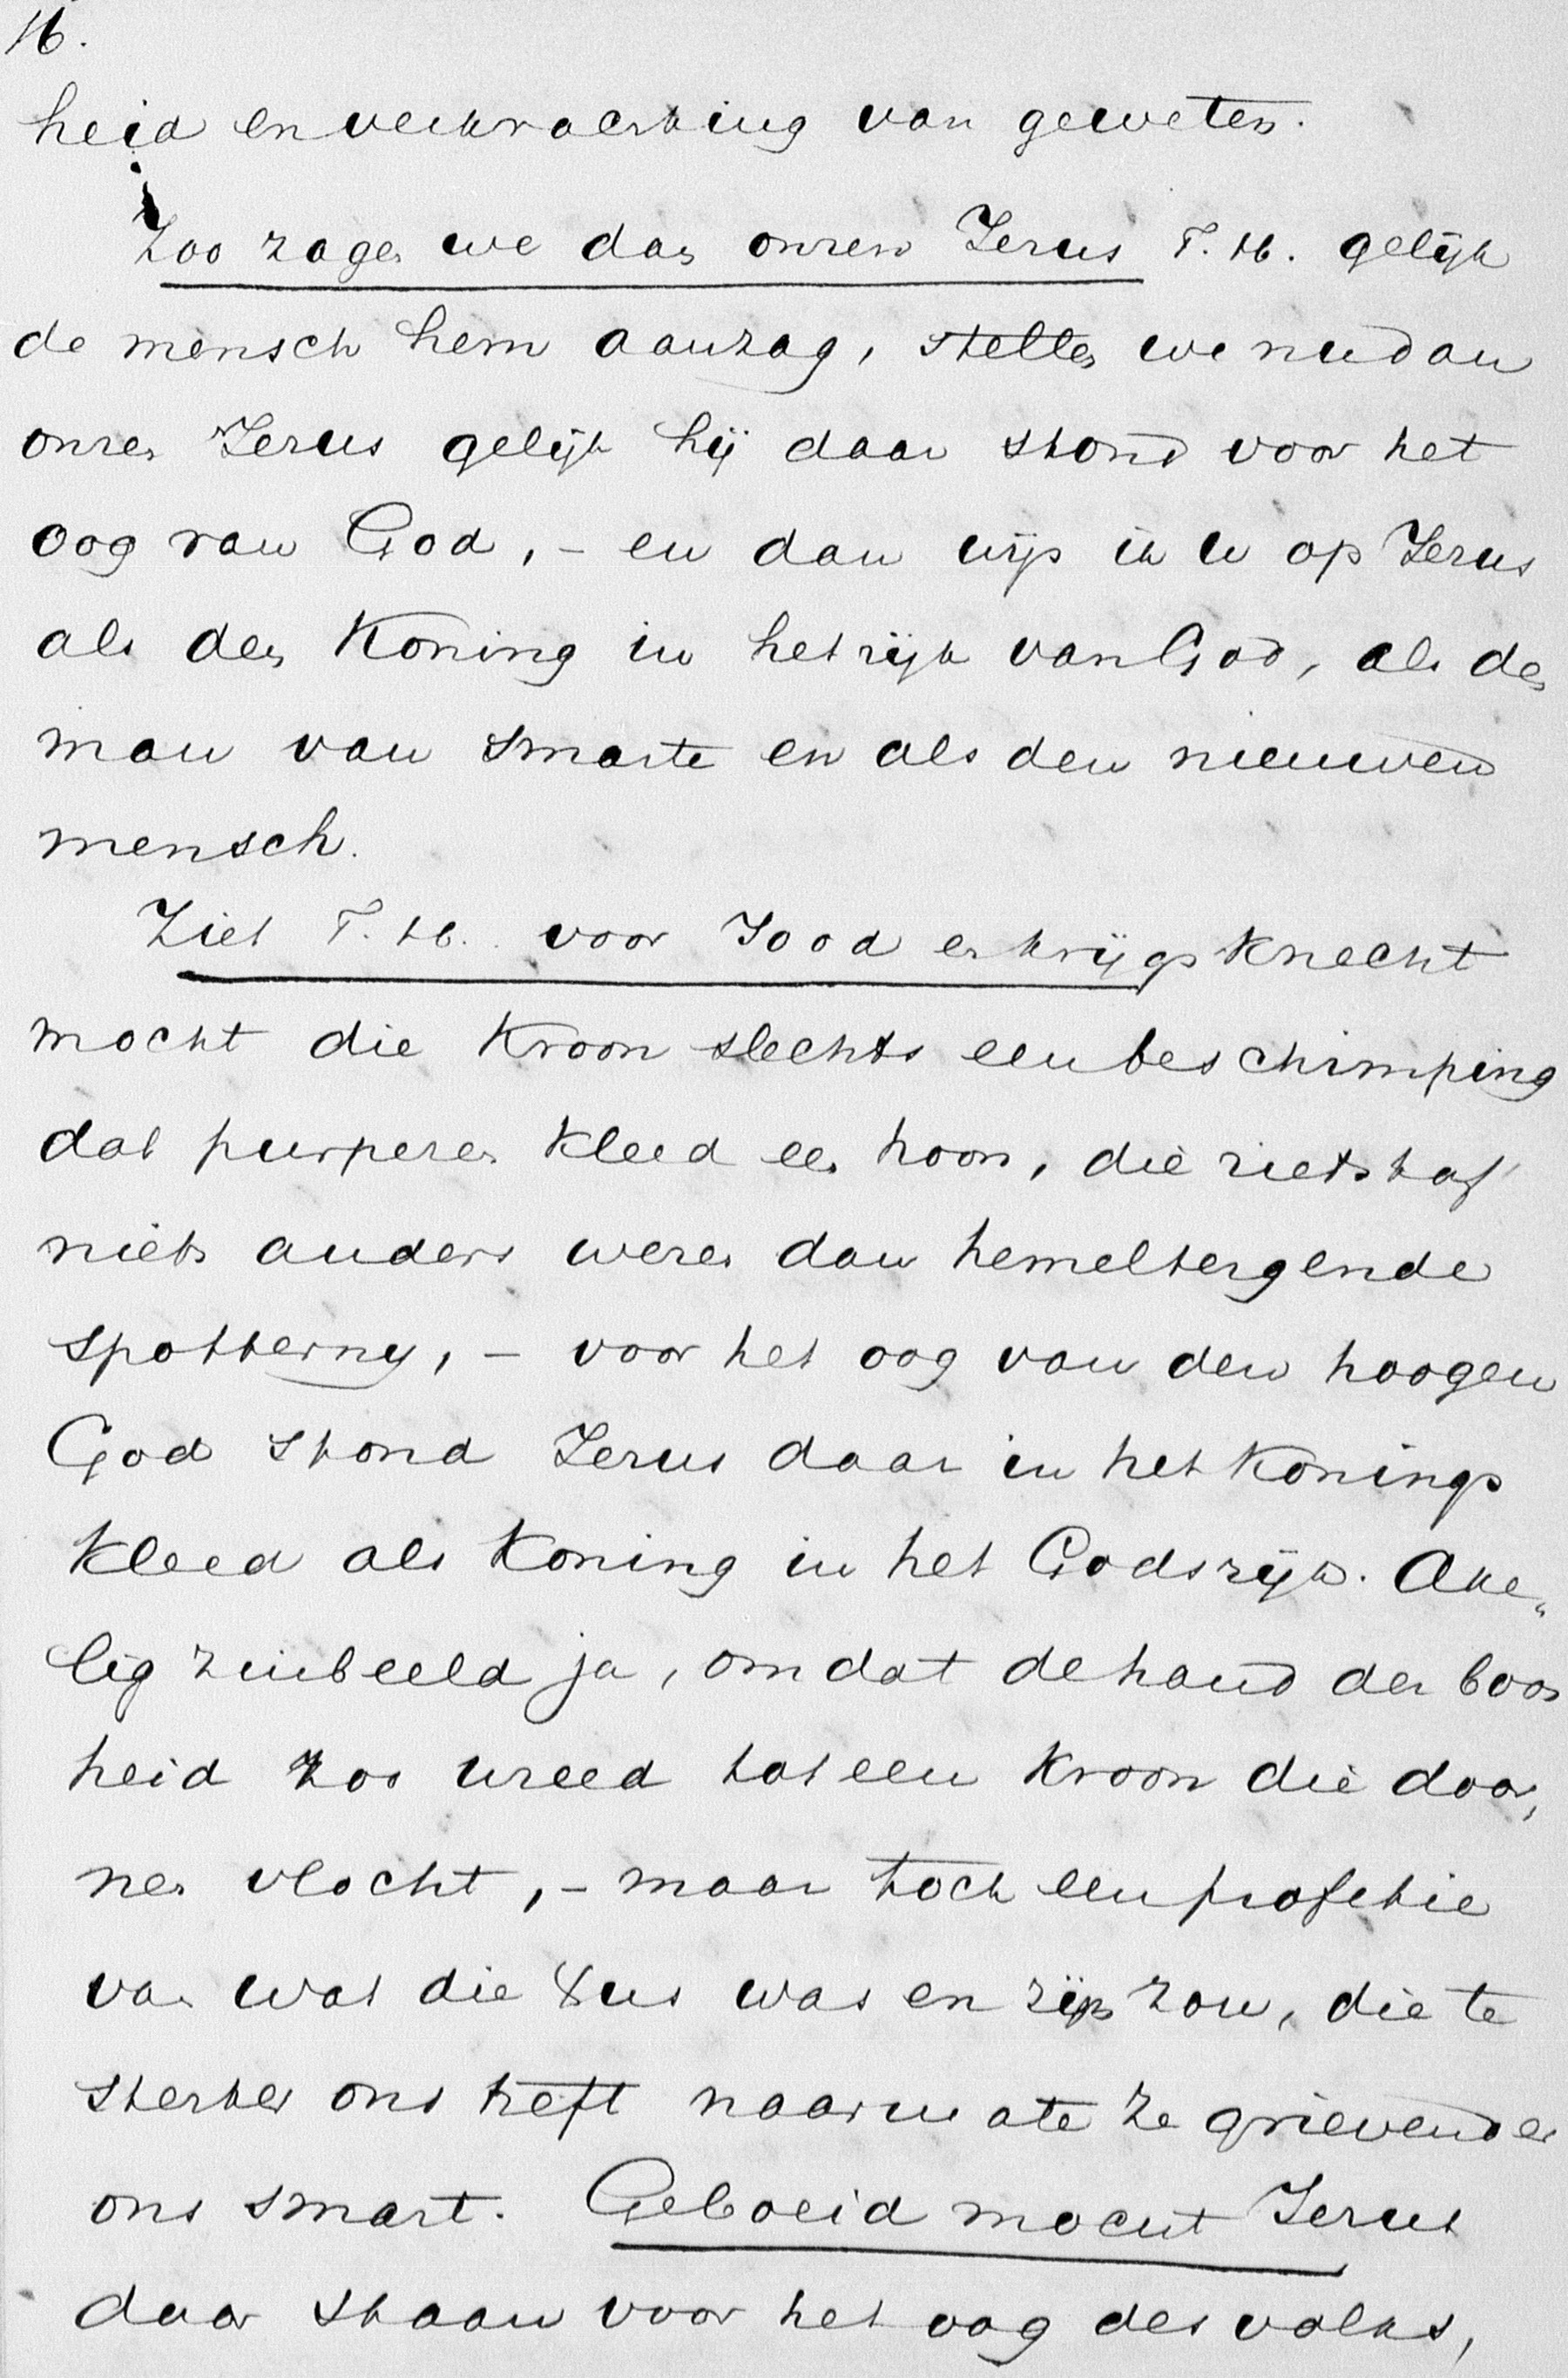 16.
heid en verkrachting van geweten.
Zoo zagen we dan onzen Jezus T. H. gelijk
de mensch hem aanzag, stellen we nu dan
onzen Jezus gelijk hij daar stond voor het
oog van God, – en dan wijs ik u op Jezus
als den Koning in het rijk van God, als den
man van smarte en als den nieuwen
mensch.
Ziet T. H. voor Jood en krijgsknecht
mocht die Kroon slechts een beschimping
dat purperen kleed een hoon, die rietstaf
niets anders wezen dan hemeltergende
spotterny, – voor het oog van den hoogen
God stond Jezus daar in het Konings
kleed als Koning in het Godsrijk. Ake„
lig zinbeeld ja, omdat de hand der boos
heid zoo wreed tot een Kroon die door„
nen vlocht, – maar toch een profetie
van wat die Xus was en zijn zou, die te
sterker ons treft naarmate ze grievender
ons smart. Geboeid mocht Jezus
daar staan voor het oog des volks,